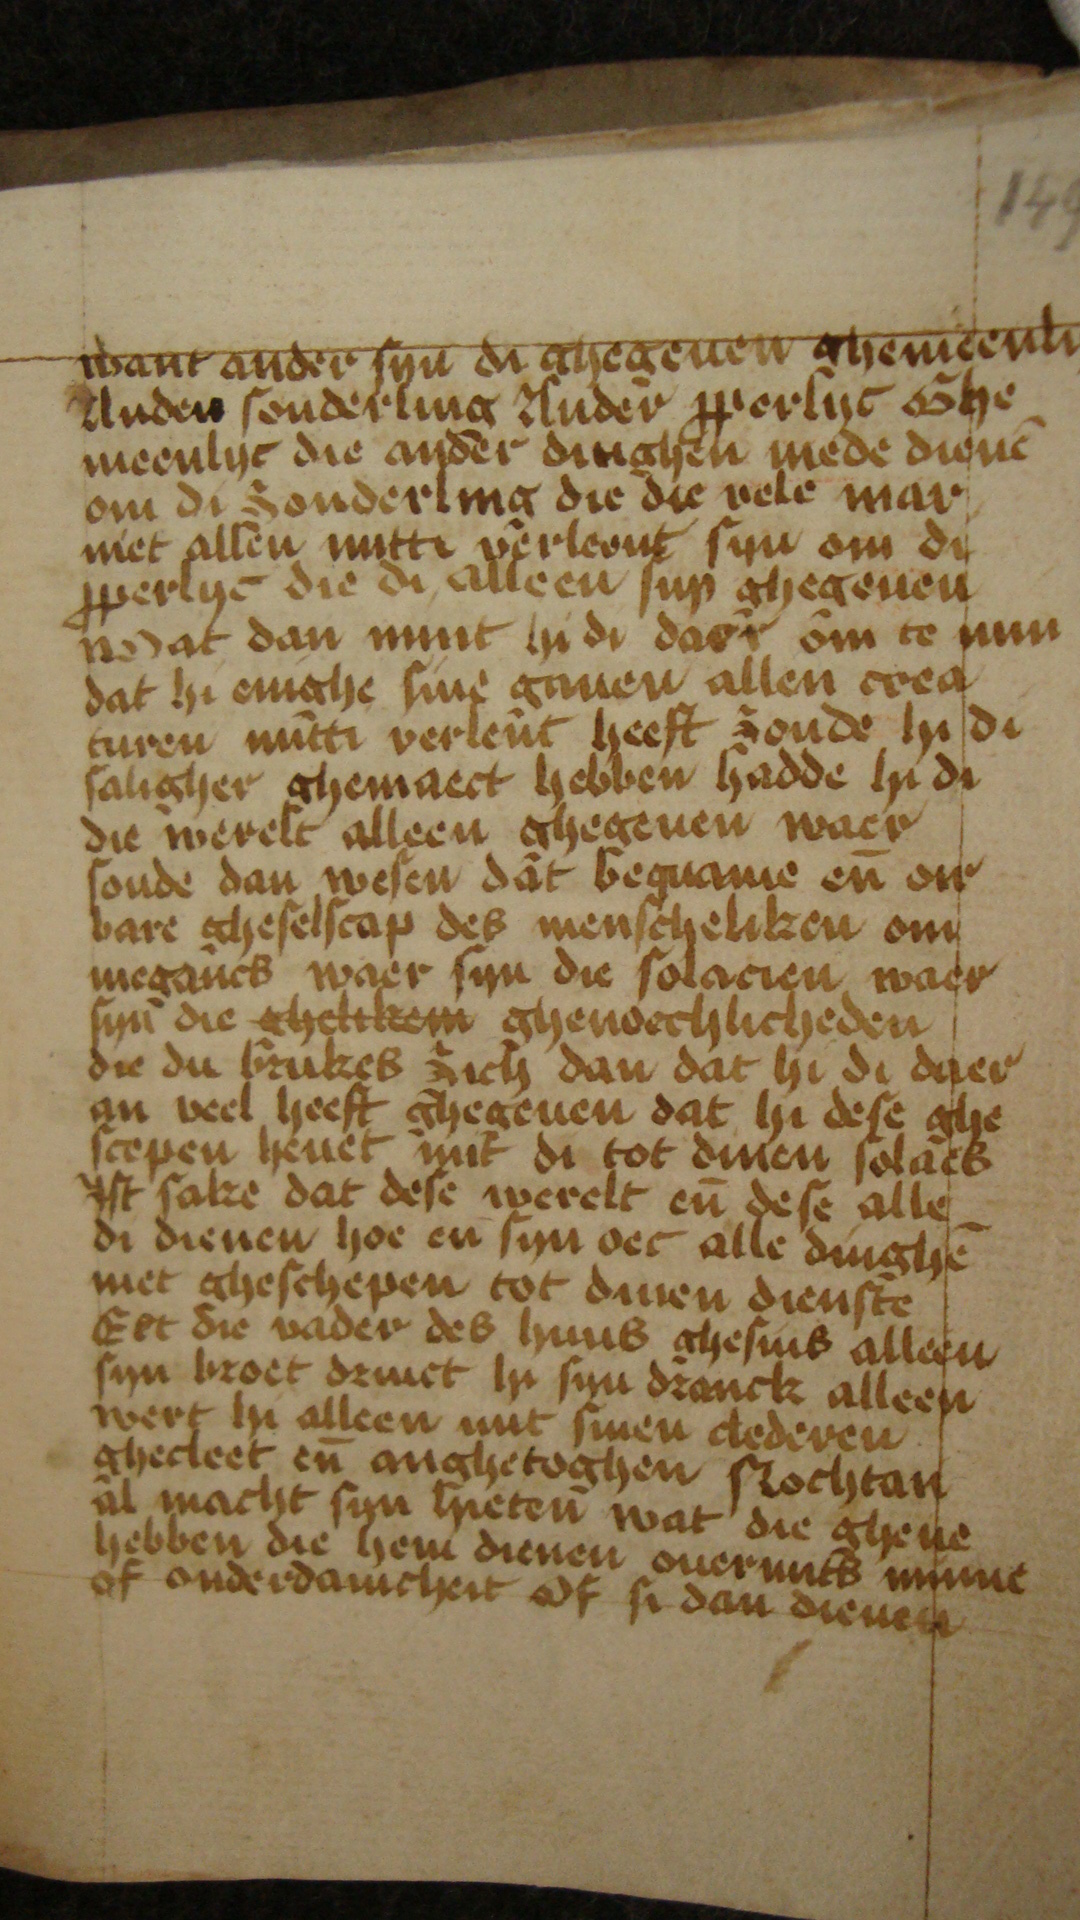 149
want ander syn di ghegeuen ghemeenli
Anden sonderling Ander pperlyc Ghe
meenlyc die ander dinghen mede dienē
om di Sonderling die die vele mar
niet allen nutti verleent syn om di
pperlyc die di alleen syn ghegeuen
Wat dan mint hi di daer om te min
dat hi enighe sine gauen allen crea
turen nutti verlent heeft Zoude hi di
saligher ghemaect hebben hadde hi di
die werelt alleen ghegeuen waer
soude dan wesen dat bequame en̄ oir
bare gheselscap des menscheliken om
megancs waer syn die solacien waer
syn die ghelikem ghenoechlicheden
die du brukes Zich dan dat hi di daer
an veel heeft ghegeuen dat hi dese ghe
scepen heuet mit di tot dinen solaes
Ist sake dat dese werelt en̄ dese alle
di dienen hoe en syn oec alle dinghē
niet gheschepen tot dinen dienste
Eet die vader des huus ghesins alleen
syn broet drinct hi syn dranck alleen
wert hi alleen mit sinen clederen
ghecleet en̄ anghetoghen Nochtan
al macht syn hieten wat die ghene
hebben die hem dienen ouermits minne
of onderdanicheit Of si dan dienen